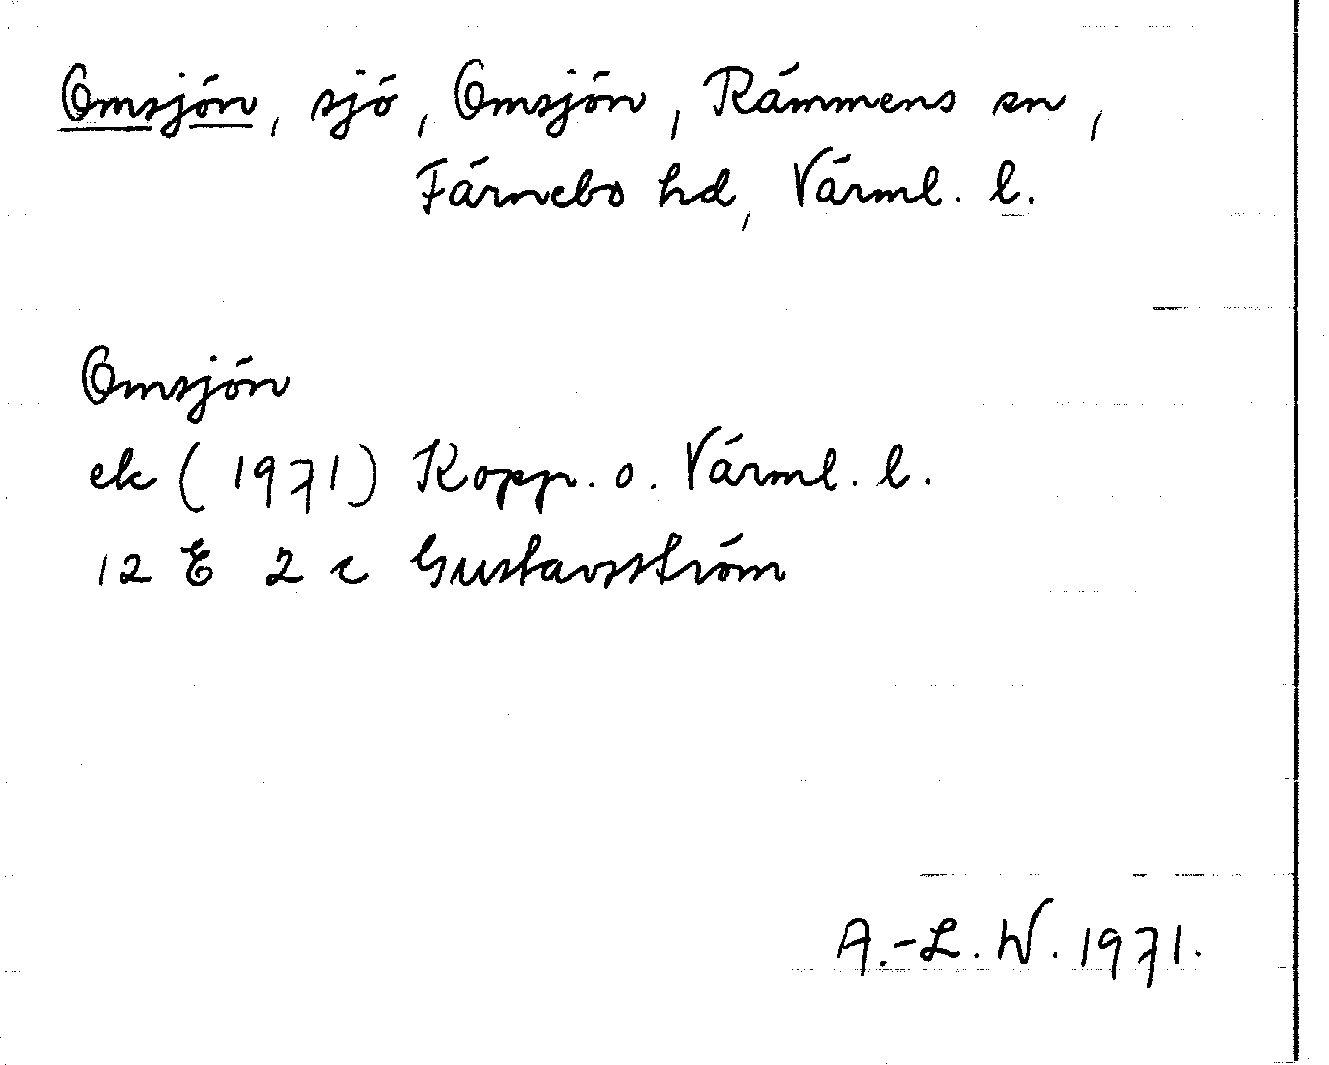 Omsjön, sjö, Omsjön, Rämmens sn,
Färnebo hd, Värml. l.
Omsjön
ek (1971) Kopp. o. Värml. l.
12 E 2 c Gustavsström
A.-L. W. 1971.